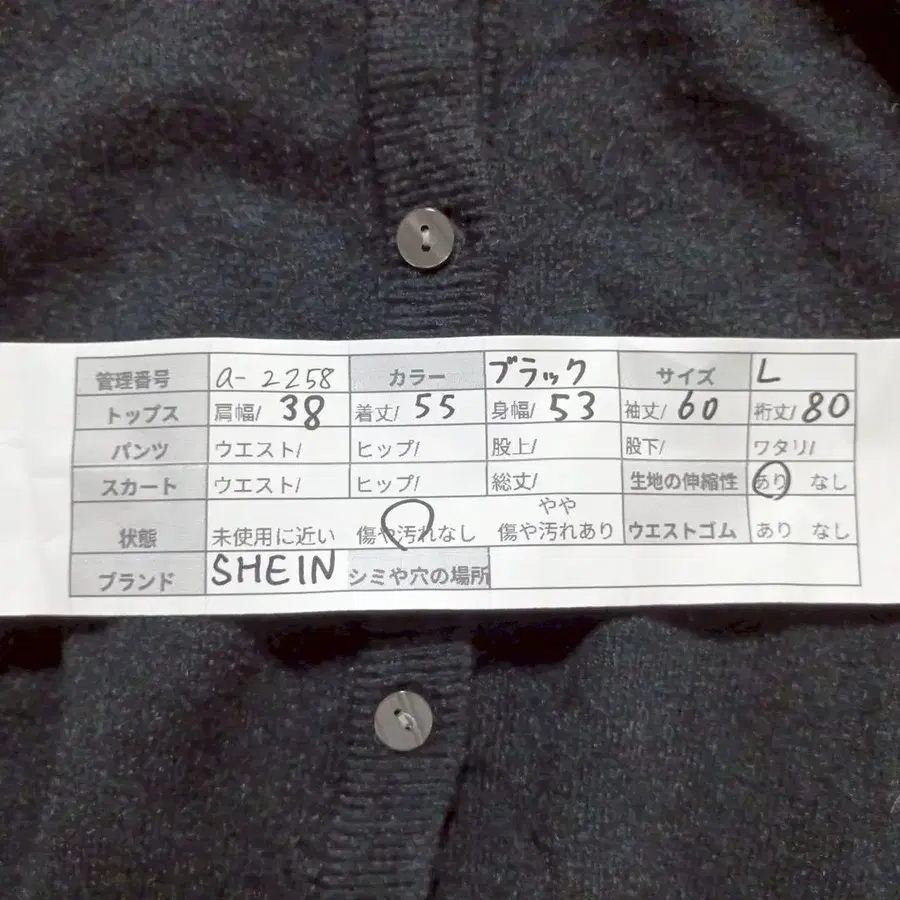 管理番号 a-2258 カラー ブラック サイズ L
トップス 肩幅/ 38 着丈/ 55 身幅/ 53 袖丈/ 60 裄丈/ 80
パンツ ウエスト/ ヒップ/ 股上/ 股下/ ワタリ/
スカート ウエスト/ ヒップ/ 総丈/ 生地の伸縮性 あり なし
状態 未使用に近い 傷や汚れなし やや傷や汚れあり ウエストゴム あり なし
ブランド SHEIN シミや穴の場所